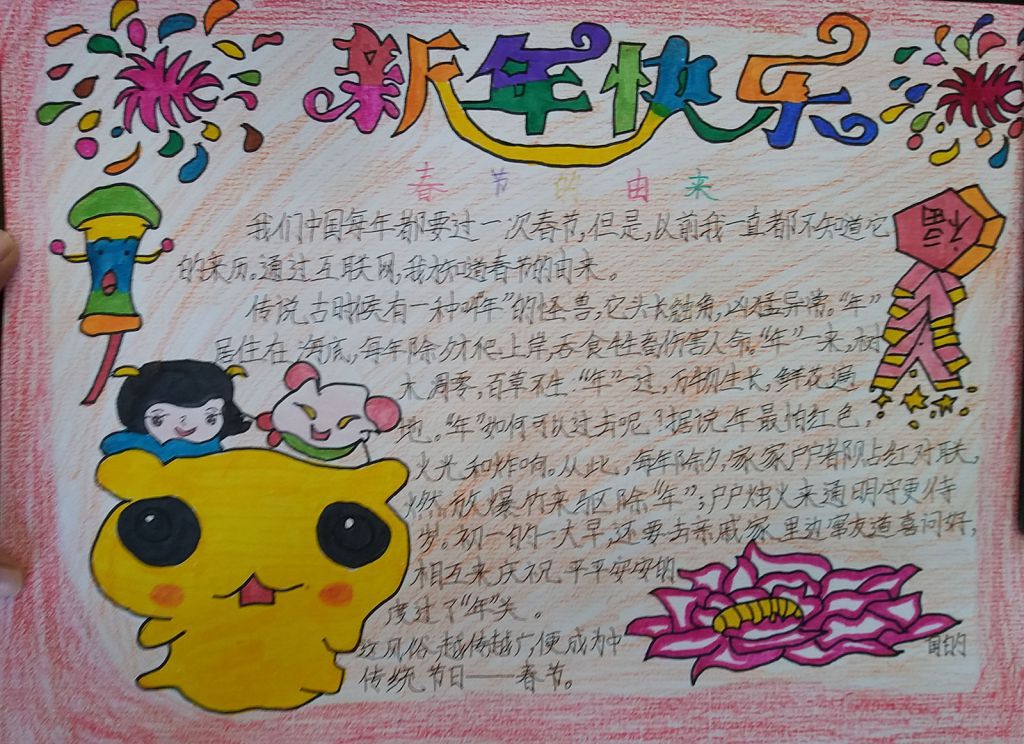 新年快乐
春节的由来
福
我们中国每年都要过一次春节,但是,以前我一直都不知道它
的来历,通过互联网,我才知道春节的由来。
传说,古时候有一种叫“年”的怪兽,它头长触角,凶猛异常。“年”
居住在海底,每年除夕才爬上岸,吞食牲畜伤害人命。“年”一来,树
木凋零,百草不生;“年”一过,万物生长,鲜花遍
地。“年”如何可以过去呢?据说年最怕红色,
火光和炸响。从此,每年除夕,家家户户都贴红对联,
燃放爆竹来驱除“年”;户户烛火来通明守更待
岁。初一的一大早,还要去亲戚家里边串友道喜问好,
相互来庆祝平平安安的
度过了“年”关。
风俗越传越广,便成为中
国的
传统节日——春节。